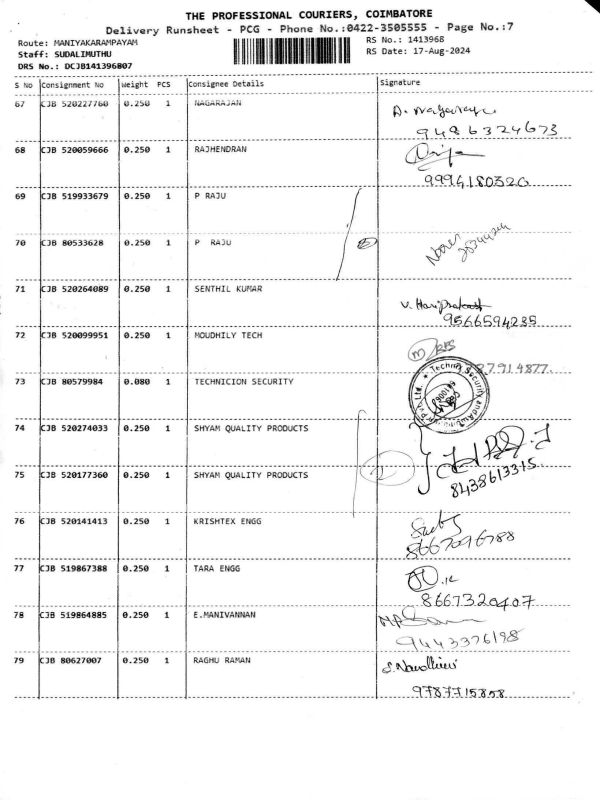 THE PROFESSIONAL COURIERS, COIMBATORE
Delivery Runsheet - PCG - Phone No.:0422-3505555 - Page No.:7
Route: MANIYAKARAMPAYAM RS No.: 1413968
Staff: SUDALIMUTHU RS Date: 17-Aug-2024
DRS No.: DCJB141396807
S No Consignment No Weight PCS Consignee Details Signature
67 CJB 520227760 0.250 1 NAGARAJAN
9486324673
68 CJB 520059666 0.250 1 RAJHENDRAN
9994180320
69 CJB 519933679 0.250 1 P RAJU
70 CJB 80533628 0.250 1 P RAJU
71 CJB 520264089 0.250 1 SENTHIL KUMAR
V. Hariprakash
9566594235
72 CJB 520099951 0.250 1 MOUDHILY TECH
73 CJB 80579984 0.080 1 TECHNICION SECURITY
74 CJB 520274033 0.250 1 SHYAM QUALITY PRODUCTS
75 CJB 520177360 0.250 1 SHYAM QUALITY PRODUCTS
8438613315
76 CJB 520141413 0.250 1 KRISHTEX ENGG
8667096788
77 CJB 519867388 0.250 1 TARA ENGG
8667320407
78 CJB 519864885 0.250 1 E.MANIVANNAN
9443376198
79 CJB 80627007 0.250 1 RAGHU RAMAN
9787715858